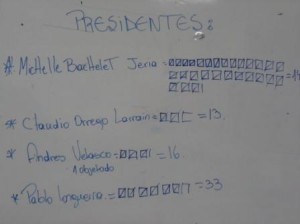 PRESIDENTES:
* Michelle Bachelet Jeria =
* Claudio Orrego Larrain = = 13.
* Andres Velasco = = 16.
1 objetado
* Pablo Longueira = = 33